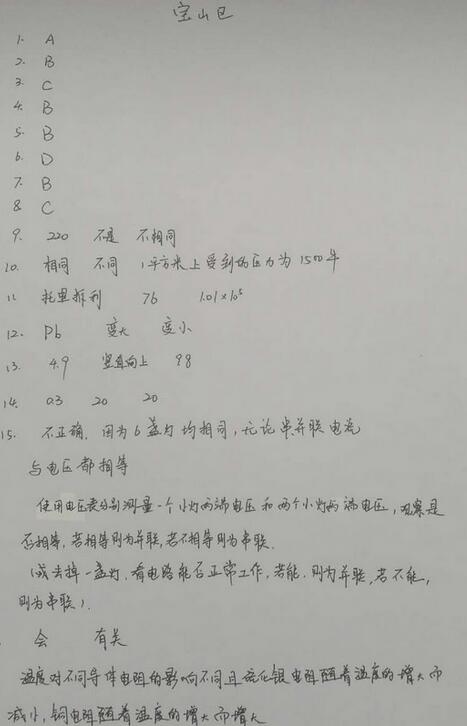 宝山区
1. A
2. B
3. C
4. B
5. B
6. D
7. B
8. C
9. 220 不是 不相同
10. 相同 不同 1平方米上受到的压力为1500牛
11 托里拆利 76 1.01×10⁵
12. Pb 变大 变小
13. 4.9 竖直向上 98
14. 0.3 20 20
15. 不正确. 因为6盏灯均相同,无论串并联电流
与电压都相等
使用电压表分别测量一个小灯两端电压和两个小灯两端电压,观察是
否相等,若相等则为并联,若不相等则为串联.
(或去掉一盏灯,看电路能否正常工作,若能,则为并联,若不能,
则为串联).
会 有关
温度对不同导体电阻的影响不同且硫化银电阻随着温度的增大而
减小,铜电阻随着温度的增大而增大